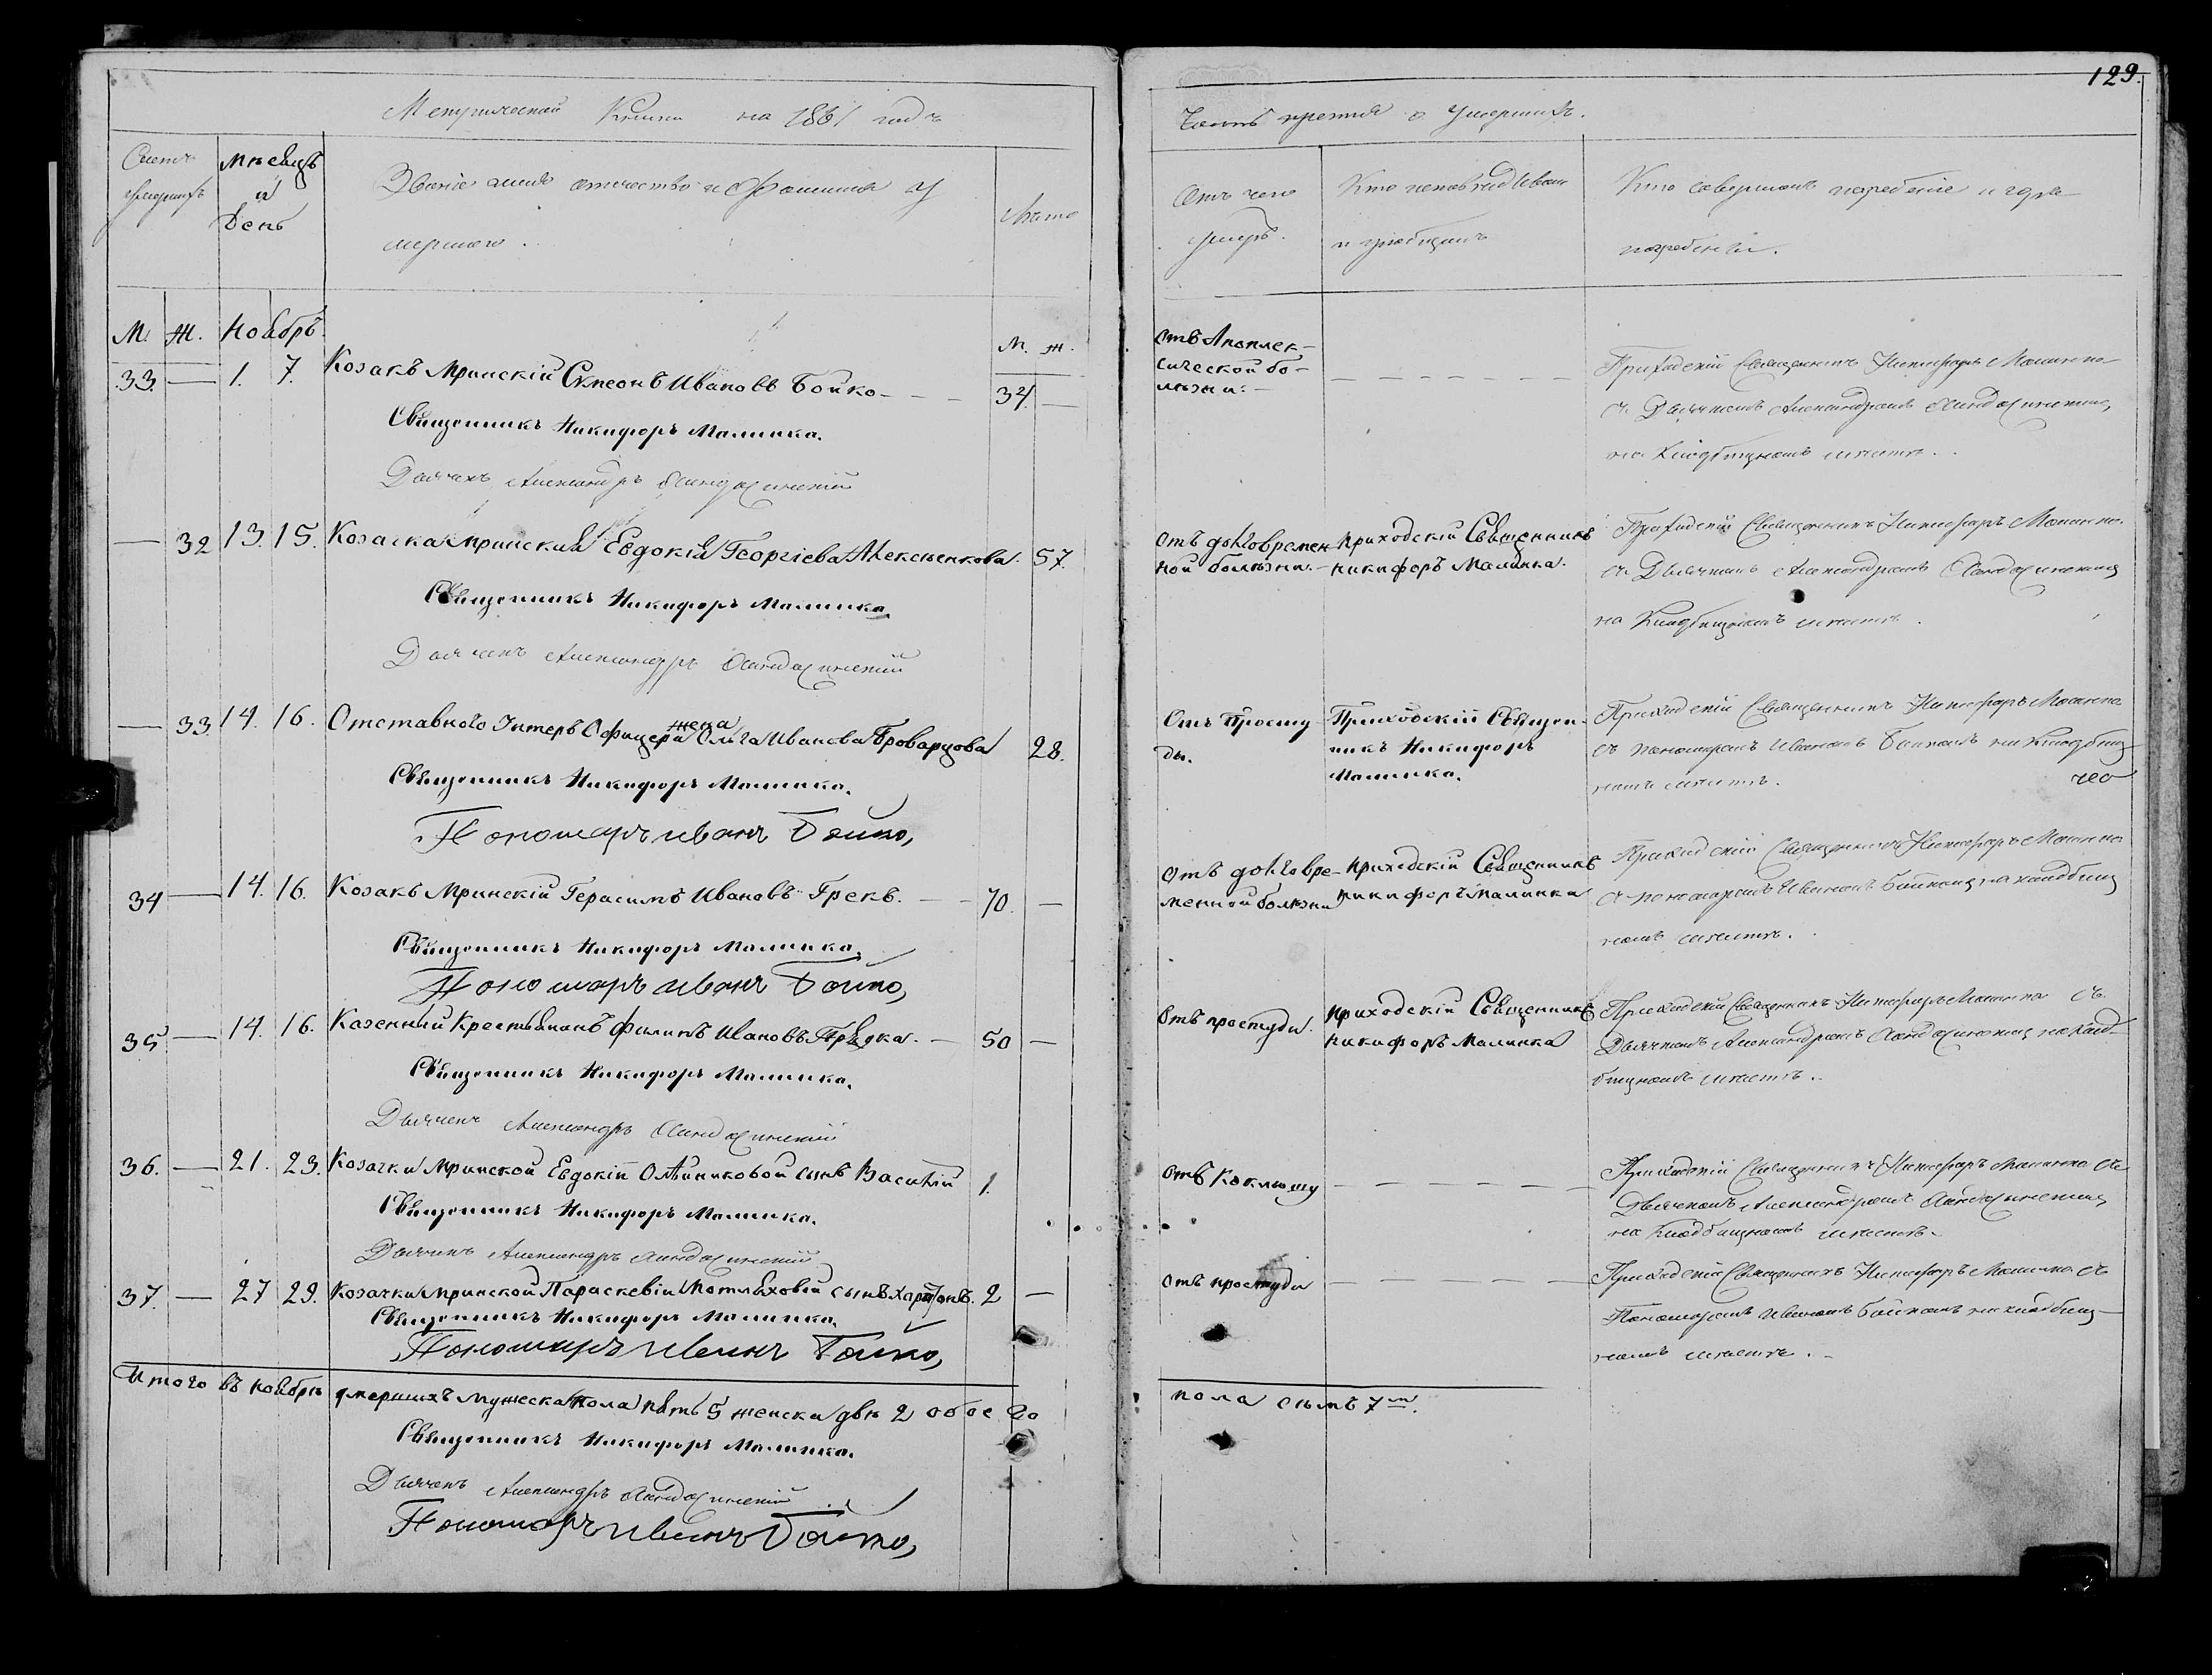 Метрической Книги на 1861 годъ
Счетъ умершихъ
Мѣсяцъ и День
Званіе имя отчество и Фамилія у
мершаго.
Лѣта
М. Ж. Ноябрь
М. Ж.
33. — 1. 7. Козакъ Мринскій Сѵмеонъ Ивановъ Бойко — — — 34. —
Священникъ Никифоръ Малинка.
Дьячекъ Александръ
— 32 13. 15. Козачка Мринская Евдокія Георгіева Алексѣенкова. 57.
Священникъ Никифоръ Малинка.
Дьячекъ Александръ
— 33. 14. 16. Отставного Унтеръ Офицера жена Ольга Иванова Броварцова 28.
Священникъ Никифоръ Малинка.
Пономарь Иванъ Бойко,
34 — 14. 16. Козакъ Мринскій Герасимъ Ивановъ Грекъ. — — 70. —
Священникъ Никифоръ Малинка.
Пономарь Иванъ Бойко,
35 — 14. 16. Казенный Крестьянинъ Филипъ Ивановъ — 50 —
Священникъ Никифоръ Малинка.
Дьячекъ Александръ
36. — 21. 23. Козачки Мринской Евдокіи Олѣйниковой сынъ Василій 1.
Священникъ Никифоръ Малинка.
Дьячекъ Александръ
37. — 27 29. Козачки Мринской Параскевіи сынъ Харитонъ. 2 —
Священникъ Никифоръ Малинка.
Пономарь Иванъ Бойко,
Итого въ Ноябрѣ умершихъ мужеска пола пять 5 женска двѣ 2 обоего
Священникъ Никифоръ Малинка.
Дьячекъ Александръ
Пономарь Иванъ Бойко,
129.
Часть третія о умершихъ.
Отъ чего
умеръ.
Кто исповѣдывалъ
и пріобщалъ
Кто совершалъ погребеніе и гдѣ
погребены.
Отъ Апоплек-
сической бо-
лѣзни. —
— — — — — —
Приходскій Священникъ Никифоръ Малинка
съ Дьячкомъ Александромъ
на Кладбищномъ мѣстѣ.
Отъ долговремен-
ной болѣзни. —
Приходскій Священникъ
Никифоръ Малинка.
Приходскій Священникъ Никифоръ Малинка.
съ Дьячкомъ Александромъ
на Кладбищномъ мѣстѣ.
Отъ Просту
ды.
Приходскій Священ-
никъ Никифоръ
Малинка.
Приходскій Священникъ Никифоръ Малинка
съ пономаремъ Иваномъ Бойкомъ на Кладбищ
номъ мѣстѣ.
Отъ долговре-
менной болѣзни
Приходскій Священникъ
Никифоръ Малинка
Приходскій Священникъ Никифоръ Малинка
съ пономаремъ Иваномъ Бойкомъ на кладбищ
номъ мѣстѣ.
Отъ простуды.
Приходскій Священникъ
Никифоръ Малинка
Приходскій Священникъ Никифоръ Малинка съ
Дьячкомъ Александромъ на Клад
бищномъ мѣстѣ.
Отъ Коклюшу — — — — — —
Приходскій Священникъ Никифоръ Малинка съ
Дьячкомъ Александромъ
на Кладбищномъ мѣстѣ.
Отъ простуды — — — —
Приходскій Священникъ Никифоръ Малинка съ
Пономаремъ Иваномъ Бойкомъ на кладбищ-
номъ мѣстѣ.
пола сѣмь 7м.